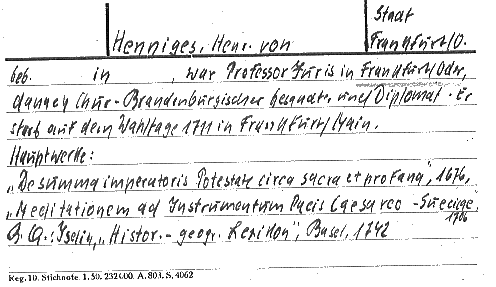 Staat
Henniges, Henr. von Frankfurt/O.
geb. in , war Professor Juris in Frankfurt/Oder,
danach Chur-Brandenburgischer Gesandter und Diplomat. Er
starb auf dem Wahltage 1711 in Frankfurt/Main.
Hauptwerke:
"De summa imperatoris Potestate circa sacra et profana", 1676,
"Meditationem ad Instrumentum Pacis Caesareo-Suecige,
1706
B.Q.: Iselin, "Histor.-geogr. Lexikon", Basel, 1742
Reg. 10. Stichnote. 1. 50. 232000. A. 803. S. 4062